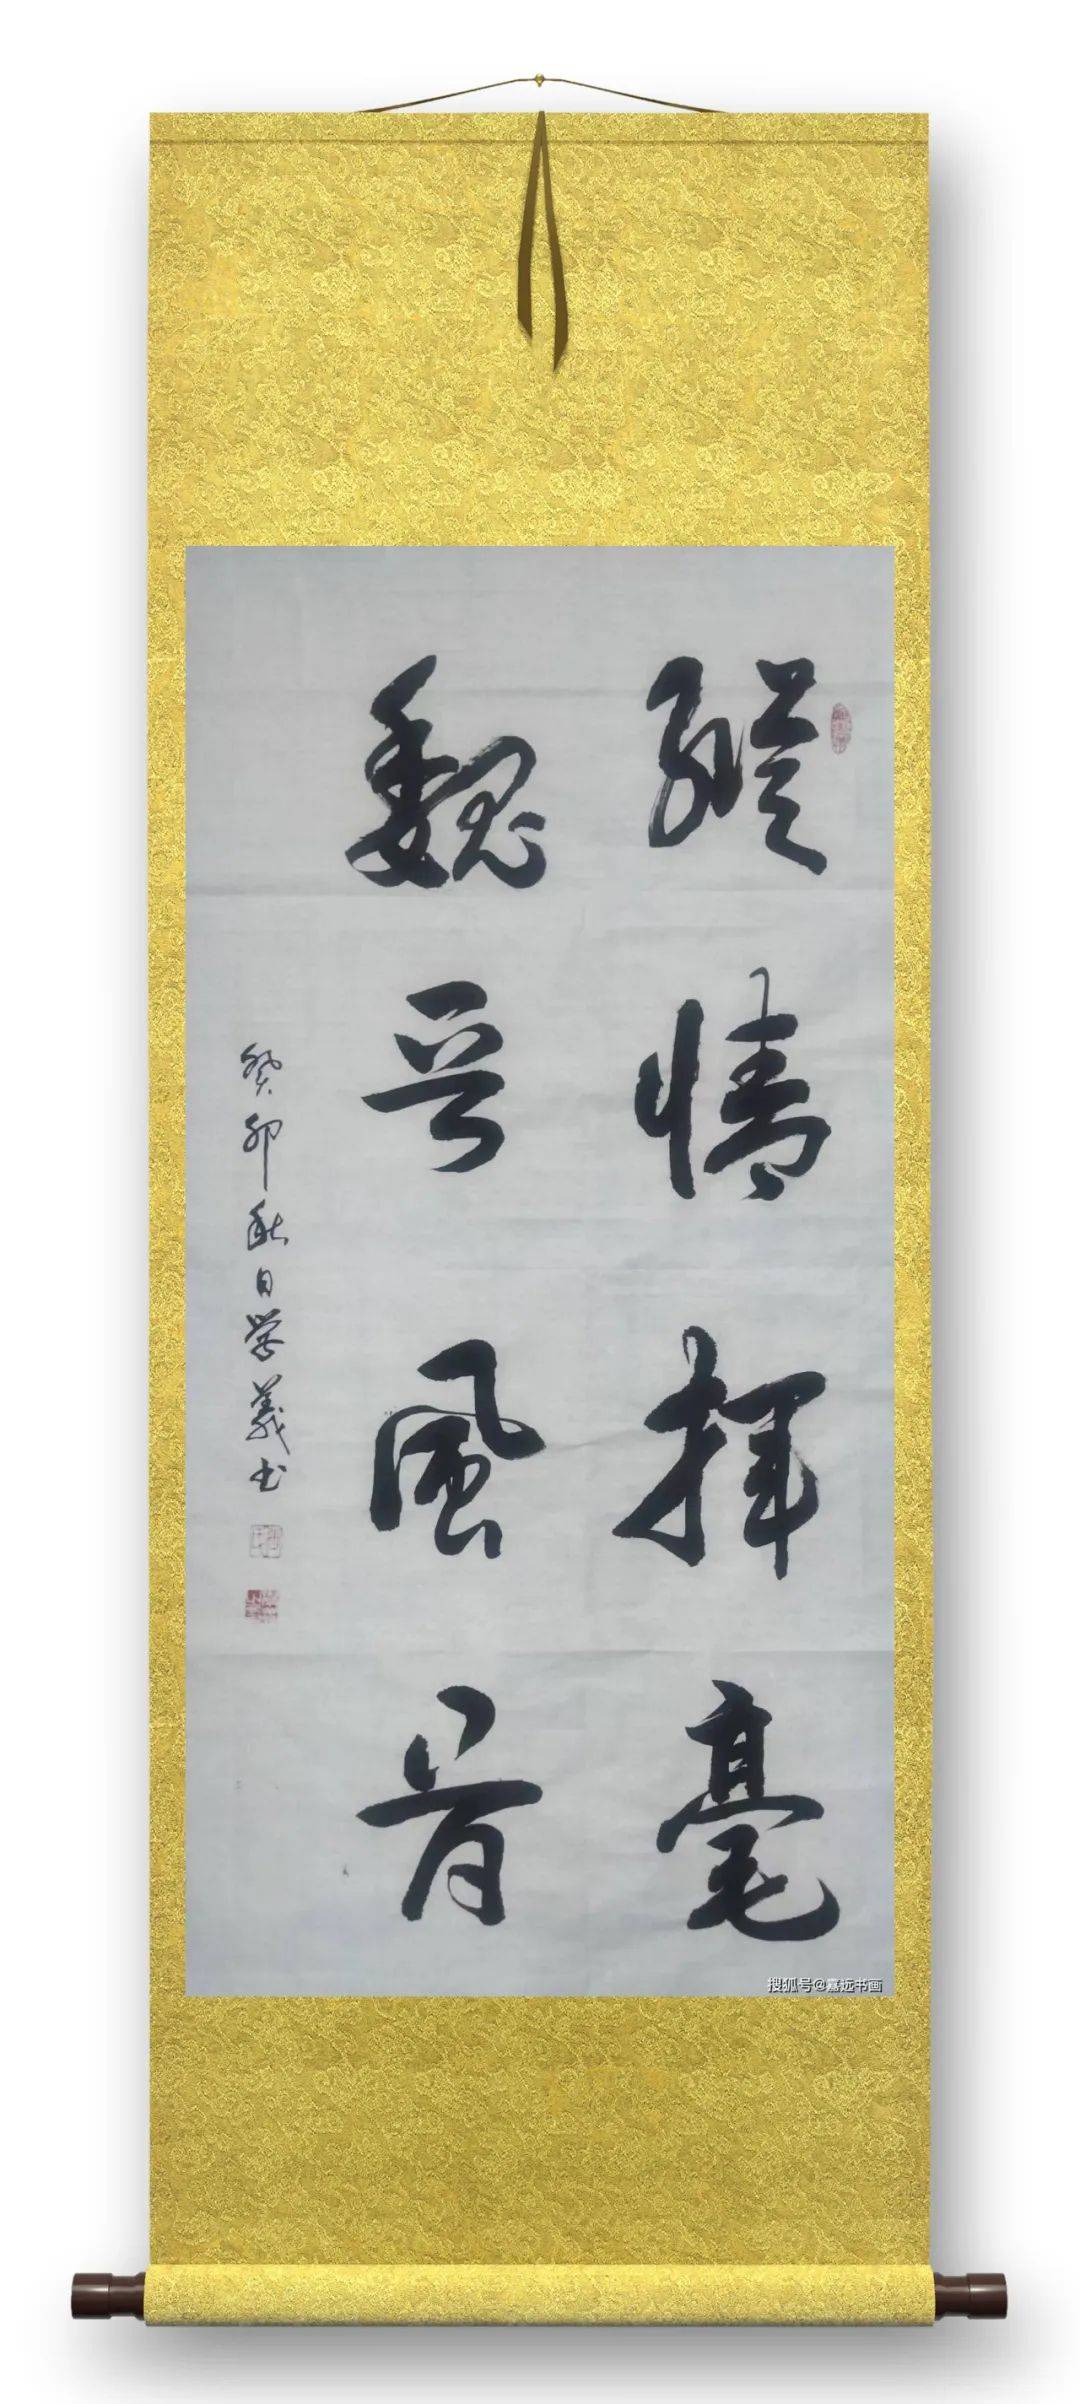 縱情揮毫
魏晋風骨
癸卯秋日学義书
搜狐号@嘉远书画